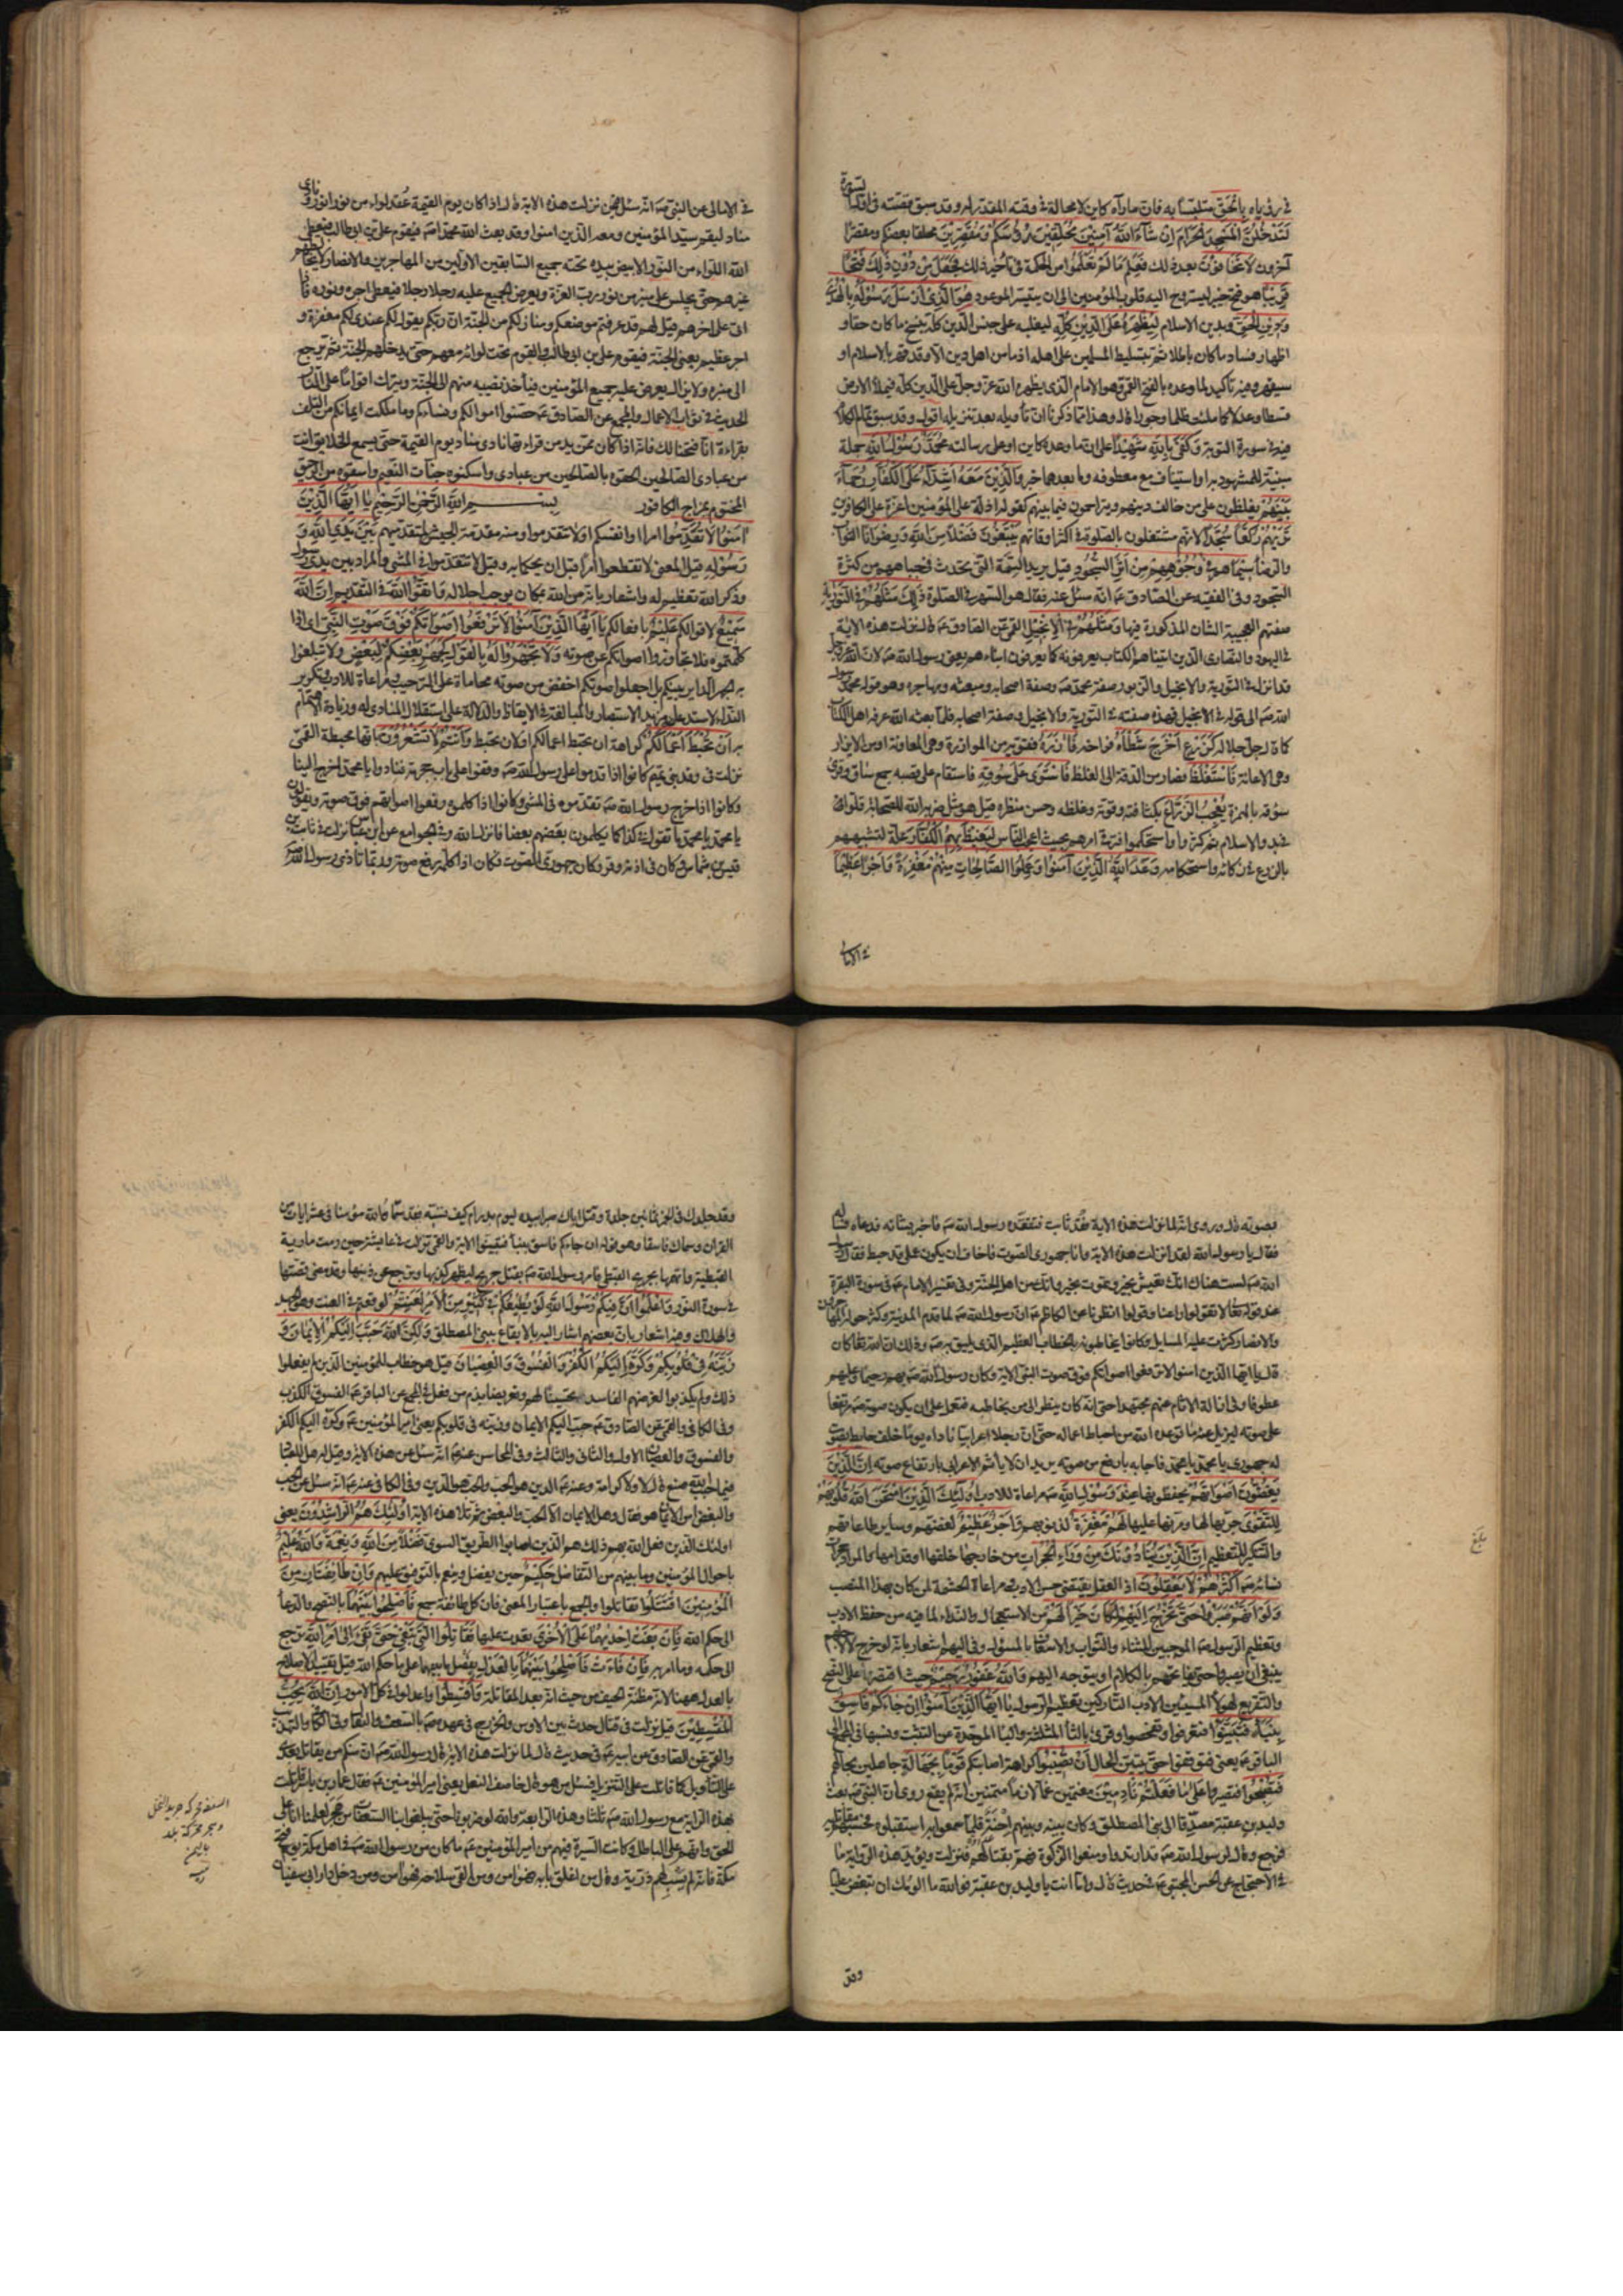 في رؤياه بِالْحَقِّ متلبسا به فان ما رآه كاين لا محالة في وقته المقدر له وقد سبق قصته في اول السورة
لَتَدْخُلُنَّ الْمَسْجِدَ الْحَرَامَ اِنْ شَآءَ اللّٰهُ آمِنِينَ مُحَلِّقِينَ رُؤُسَكُمْ وَمُقَصِّرِينَ محلقا بعضكم ومقصرا
آخرون لَا تَخَافُونَ بعد ذلك فَعَلِمَ مَا لَمْ تَعْلَمُوا من الحكمة في تأخير ذلك فَجَعَلَ مِنْ دُونِ ذٰلِكَ فَتْحًا
قَرِيبًا هو فتح خيبر ليستروح اليه قلوب المؤمنين الى ان يتيسر الموعود هُوَ الَّذِي اَرْسَلَ رَسُولَهُ بِالْهُدٰى
وَدِينِ الْحَقِّ وبدين الاسلام لِيُظْهِرَهُ عَلَى الدِّينِ كُلِّهِ ليغلبه على جنس الدين كله بنسخ ما كان حقا و
اظهار فساد ما كان باطلا ثم بتسليط المسلمين على اهله اذ ما من اهل دين الا وقد قهر بالاسلام او
سيقهر وفيه تأكيد لما وعده بالفتح القمي وهو الامام الذي يظهره الله عز وجل على الدين كله فيملأ الارض
قسطا وعدلا كما ملئت ظلما وجورا قال وهذا مما ذكرنا ان تأويله بعد تنزيله اقول وقد سبق تمام الكلام
فيه في سورة التوبة وَكَفٰى بِاللّٰهِ شَهِيدًا على ان ما وعده كاين او على رسالته مُحَمَّدٌ رَسُولُ اللّٰهِ جملة
مبينة للمشهود به او استيناف مع معطوفه وما بعدهما خبر وَالَّذِينَ مَعَهُ اَشِدَّآءُ عَلَى الْكُفَّارِ رُحَمَآءُ
بَيْنَهُمْ يغلظون على من خالف دينهم ويتراحمون فيما بينهم كقوله اذلة على المؤمنين اعزة على الكافرين
تَرٰيهُمْ رُكَّعًا سُجَّدًا لانهم مشتغلون بالصلوة في اكثر اوقاتهم يَبْتَغُونَ فَضْلًا مِنَ اللّٰهِ وَرِضْوَانًا الثواب
والرضا سِيمَاهُمْ فِي وُجُوهِهِمْ مِنْ اَثَرِ السُّجُودِ قيل يريد السمة التي تحدث في جباههم من كثرة
السجود وفي الفقيه عن الصادق ع انه سئل عنه فقال هو السهر في الصلوة ذٰلِكَ مَثَلُهُمْ فِي التَّوْرٰيةِ
صفتهم العجيبة الشان المذكورة فيها وَمَثَلُهُمْ فِي الْاِنْجِيلِ القمي عن الصادق ع قال نزلت هذه الاية
في اليهود والنصارى الذين اتيناهم الكتاب يعرفونه كما يعرفون ابناءهم يعني رسول الله ص لان الله عز وجل
قد انزل في التورية والانجيل والزبور صفة محمد ص وصفة اصحابه ومبعثه ومهاجره وهو قوله محمد رسول
الله ص الى قوله في الانجيل فهذه صفته في التورية والانجيل وصفة اصحابه فلما بعثه الله عرفه اهل الكتاب
كما قال جل جلاله كَزَرْعٍ اَخْرَجَ شَطْأَهُ فراخه فَاٰزَرَهُ فقويه من الموازرة وهي المعاونة او من الايزار
وهي الاعانة فَاسْتَغْلَظَ فصار من الدقة الى الغلظ فَاسْتَوٰى عَلٰى سُوقِهِ فاستقام على قصبه جمع ساق وقرئ
سؤقه بالهمزة يُعْجِبُ الزُّرَّاعَ بكثافته وقوته وغلظه وحسن منظره قيل هو مثل ضربه الله للصحابة قلوا
في بدو الاسلام ثم كثروا واستحكموا فترقى امرهم بحيث اعجب الناس لِيَغِيظَ بِهِمُ الْكُفَّارَ علة لتشبيههم
بالزرع في زكائه واستحكامه وَعَدَ اللّٰهُ الَّذِينَ آمَنُوا وَعَمِلُوا الصَّالِحَاتِ مِنْهُمْ مَغْفِرَةً وَاَجْرًا عَظِيمًا
في الامالي
في الامالي عن النبي ص انه سئل فيمن نزلت هذه الاية قال اذا كان يوم القيمة عقد لواء من نور انور ونادى
مناد ليقم سيد المؤمنين ومعه الذين امنوا وقد بعث الله محمدا ص فيقوم علي بن ابي طالب فيعطى
الله اللواء من النور الابيض بيده تحته جميع السابقين الاولين من المهاجرين والانصار لا يخالطهم
غيرهم حتى يجلس على منبر من نور رب العزة ويعرض الجميع عليه رجلا رجلا فيعطى اجره ونوره فاذا
اتى على اخرهم قيل لهم قد عرفتم موضعكم ومنازلكم من الجنة ان ربكم يقول لكم عندي لكم مغفرة و
اجر عظيم يعني الجنة فيقوم علي بن ابي طالب والقوم تحت لوائه معهم حتى يدخلهم الجنة ثم يرجع
الى منبره ولا يزال يعرض عليه جميع المؤمنين فيأخذ نصيبه منهم الى الجنة ويترك اقواما على النار
الحديث في ثواب الاعمال والمجمع عن الصادق ع حصنوا اموالكم ونساءكم وما ملكت ايمانكم من التلف
بقراءة انا فتحنا لك فانه اذا كان ممن يدمن قراءتها نادى مناد يوم القيمة حتى يسمع الخلايق انت
من عبادي الصالحين الحقوه بالصالحين من عبادي واسكنوه جنات النعيم واسقوه من الرحيق
المختوم بمزاج الكافور بسم اللّٰه الرَّحْمٰنِ الرَّحِيمِ يَا اَيُّهَا الَّذِينَ
آمَنُوا لَا تُقَدِّمُوا امرا او انفسكم او لا تتقدموا ومنه مقدمة الجيش لمتقدميهم بَيْنَ يَدَيِ اللّٰهِ وَ
رَسُولِهِ قيل المعنى لا تقطعوا امرا قبل ان يحكما به وقيل لا تتقدموا في المشي والمراد بين يدي رسول
وذكر الله تعظيم له واشعار بانه من الله بمكان يوجب اجلاله وَاتَّقُوا اللّٰهَ في التقديم اِنَّ اللّٰهَ
سَمِيعٌ لاقوالكم عَلِيمٌ بافعالكم يَا اَيُّهَا الَّذِينَ آمَنُوا لَا تَرْفَعُوا اَصْوَاتَكُمْ فَوْقَ صَوْتِ النَّبِيِّ اي اذا
كلمتموه فلا تجاوزوا اصواتكم عن صوته وَلَا تَجْهَرُوا لَهُ بِالْقَوْلِ كَجَهْرِ بَعْضِكُمْ لِبَعْضٍ ولا تبلغوا
به الجهر الداير بينكم بل اجعلوا صوتكم اخفض من صوته محاماة على الترحيب ومراعاة للادب وتكرير
النداء لاستدعاء مزيد الاستبصار والمبالغة في الايقاظ والدلالة على استقلال المنادى له وزيادة الاهتمام
به اَنْ تَحْبَطَ اَعْمَالُكُمْ كراهة ان تحبط اعمالكم او لان تحبط وَاَنْتُمْ لَا تَشْعُرُونَ بانها محبطة القمي
نزلت في وفد بني تميم كانوا اذا قدموا على رسول الله ص وقفوا على باب حجرته فنادوا يا محمد اخرج الينا
وكانوا اذا خرج رسول الله ص تقدموه في المشي وكانوا اذا كلموه رفعوا اصواتهم فوق صوته ويقولون
يا محمد يا محمد ما تقول في كذا كما يكلمون بعضهم بعضا فانزل الله وفي الجوامع عن ابن عباس نزلت في ثابت بن
قيس بن شماس وكان في اذنه وقر وكان جهوري الصوت فكان اذا كلمه رفع صوته وربما تاذى رسول الله ص
بصوته قال وروي انه لما نزلت هذه الاية فقد ثابت فتفقده رسول الله ص فاخبر بشانه فدعاه فسأله
فقال يا رسول الله لقد انزلت هذه الاية وانا جهوري الصوت فاخاف ان يكون عملي قد حبط فقال رسول
الله ص لست هناك انك تعيش بخير وتموت بخير وانك من اهل الجنة وفي تفسير الامام ع في سورة البقرة
عند قوله تعالى لا تقولوا راعنا وقولوا انظرنا عن الكاظم ع ان رسول الله ص لما قدم المدينة وكثر حوله المهاجرون
والانصار كثرت عليه المسايل وكانوا يخاطبونه بالخطاب العظيم الذي يليق به ص وذلك ان الله تعالى كان
قال يا ايها الذين امنوا لا ترفعوا اصواتكم فوق صوت النبي الاية وكان رسول الله ص بهم رحيما وعليهم
عطوفا وفي ازالة الاثام عنهم مجتهدا حتى انه كان ينظر الى من يخاطبه فتعمد على ان يكون صوته ص مرتفعا
على صوته ليزيل عنه ما توعده الله من احباط اعماله حتى ان رجلا اعرابيا ناداه يوما خلف حايط بصوت
له جهوري يا محمد يا محمد فاجابه بارفع من صوته يريد ان لا يأثم الاعرابي بارتفاع صوته اِنَّ الَّذِينَ
يَغُضُّونَ اَصْوَاتَهُمْ يخفضونها عِنْدَ رَسُولِ اللّٰهِ ص مراعاة للادب اُولٰئِكَ الَّذِينَ امْتَحَنَ اللّٰهُ قُلُوبَهُمْ
لِلتَّقْوٰى جربها لها ومرنها عليها لَهُمْ مَغْفِرَةٌ لذنوبهم وَاَجْرٌ عَظِيمٌ لغضهم وساير طاعاتهم
والتنكير للتعظيم اِنَّ الَّذِينَ يُنَادُونَكَ مِنْ وَرَاءِ الْحُجُرَاتِ من خارجها خلفها او قدامها والمراد حجرات
نسائه ص اَكْثَرُهُمْ لَا يَعْقِلُونَ اذ العقل يقتضي حسن الادب ومراعاة الحشمة لمن كان بهذا المنصب
وَلَوْ اَنَّهُمْ صَبَرُوا حَتّٰى تَخْرُجَ اِلَيْهِمْ لَكَانَ خَيْرًا لَهُمْ من الاستعجال والنداء لما فيه من حفظ الادب
وتعظيم الرسول ص الموجبين للثناء والثواب والاسعاف بالمسئول وفي اليهم اشعار بانه لو خرج لا لاجلهم
ينبغي ان يصبروا حتى يفاتحهم بالكلام او يتوجه اليهم وَاللّٰهُ غَفُورٌ رَحِيمٌ حيث اقتصر على النصح
والتقريع لهؤلاء المسيئين الادب التاركين تعظيم الرسول يَا اَيُّهَا الَّذِينَ آمَنُوا اِنْ جَاءَكُمْ فَاسِقٌ
بِنَبَأٍ فَتَبَيَّنُوا فتعرفوا وتفحصوا وقرئ بالثاء المثلثة والباء الموحدة من التثبت ونسبها في المجمع الى
الباقر ع يعني فتوقفوا حتى يتبين الحال اَنْ تُصِيبُوا كراهة اصابتكم قَوْمًا بِجَهَالَةٍ جاهلين بحالهم
فَتُصْبِحُوا فتصيروا عَلٰى مَا فَعَلْتُمْ نَادِمِينَ مغتمين غما لازما متمنين انه لم يقع روي ان النبي ص بعث
وليد بن عقبة مصدقا الى بني المصطلق وكان بينه وبينهم اِحْنَةٌ فلما سمعوا به استقبلوه فحسبهم مقاتليه
فرجع وقال لرسول الله ص قد ارتدوا ومنعوا الزكوة فهم بقتالهم فنزلت ويؤيد هذه الرواية ما
في الاحتجاج عن الحسن المجتبى ع في حديث قال واما انت يا وليد بن عقبة فوالله ما الومك ان تبغض عليا
بلغ
وقد
وقد جلدك في الخمر ثمانين جلدة وقتل اباك صبرا بيده يوم بدر ام كيف تسبه فقد سماه الله مؤمنا في عشر ايات من
القران وسماك فاسقا وهو قوله ان جاءكم فاسق بنبأ فتبينوا الاية والقمي نزلت في عايشة حين رمت مارية
القبطية واتهمتها بجريح القبطي فامر رسول الله ص بقتل جريح ليظهر كذبها وترجع عن ذنبها وقد مضى قصتها
في سورة النور وَاعْلَمُوا اَنَّ فِيكُمْ رَسُولَ اللّٰهِ لَوْ يُطِيعُكُمْ فِي كَثِيرٍ مِنَ الْاَمْرِ لَعَنِتُّمْ لوقعتم في العنت وهو الجهد
والهلاك وفيه اشعار بان بعضهم اشار اليه بالايقاع ببني المصطلق وَلٰكِنَّ اللّٰهَ حَبَّبَ اِلَيْكُمُ الْاِيمَانَ وَ
زَيَّنَهُ فِي قُلُوبِكُمْ وَكَرَّهَ اِلَيْكُمُ الْكُفْرَ وَالْفُسُوقَ وَالْعِصْيَانَ قيل هو خطاب للمؤمنين الذين لم يفعلوا
ذلك ولم يكذبوا لغرضهم الفاسد تحسينا لهم وتعريضا بذم من فعل في المجمع عن الباقر ع الفسوق الكذب
وفي الكافي والقمي عن الصادق ع حبب اليكم الايمان وزينه في قلوبكم يعني امير المؤمنين ع وكره اليكم الكفر
والفسوق والعصيان الاول والثاني والثالث وفي المحاسن عنه ع انه سئل عن هذه الاية وقيل له هل للعباد
فيما حبب الله صنع قال لا ولا كرامة وعنه ع الدين هو الحب والحب هو الدين وفي الكافي عنه ع انه سئل عن الحب
والبغض امن الايمان هو فقال وهل الايمان الا الحب والبغض ثم تلا هذه الاية اُولٰئِكَ هُمُ الرَّاشِدُونَ يعني
اولئك الذين فعل الله بهم ذلك هم الذين اصابوا الطريق السوي فَضْلًا مِنَ اللّٰهِ وَنِعْمَةً وَاللّٰهُ عَلِيمٌ
باحوال المؤمنين وما بينهم من التفاضل حَكِيمٌ حين يفضل وينعم بالتوفيق عليهم وَاِنْ طَائِفَتَانِ مِنَ
الْمُؤْمِنِينَ اقْتَتَلُوا تقاتلوا والجمع باعتبار المعنى فان كل طائفة جمع فَاَصْلِحُوا بَيْنَهُمَا بالنصح والدعاء
الى حكم الله فَاِنْ بَغَتْ اِحْدٰيهُمَا عَلَى الْاُخْرٰى تعدت عليها فَقَاتِلُوا الَّتِي تَبْغِي حَتّٰى تَفِيءَ اِلٰى اَمْرِ اللّٰهِ ترجع
الى حكمه وما امر به فَاِنْ فَاءَتْ فَاَصْلِحُوا بَيْنَهُمَا بِالْعَدْلِ بفصل ما بينهما على ما حكم الله قيل تقييد الاصلاح
بالعدل ههنا لانه مظنة الحيف من حيث انه بعد المقاتلة وَاَقْسِطُوا واعدلوا في كل الامور اِنَّ اللّٰهَ يُحِبُّ
الْمُقْسِطِينَ قيل نزلت في قتال حدث بين الاوس والخزرج في عهده ص بالسعف والنعال وفي الكافي والتهذيب
والقمي عن الصادق عن ابيه ع في حديث قال لما نزلت هذه الاية قال رسول الله ص ان منكم من يقاتل بعدي
على التأويل كما قاتلت على التنزيل فسئل من هو قال خاصف النعل يعني امير المؤمنين ع فقال عمار بن ياسر قاتلت
بهذه الراية مع رسول الله ص ثلثا وهذه الرابعة والله لو ضربونا حتى يبلغوا بنا السعفات من هجر لعلمنا انا على
الحق وانهم على الباطل وكانت السيرة فيهم من امير المؤمنين ع ما كان من رسول الله ص في اهل مكة يوم فتح
مكة فانه لم يَسْبِ لهم ذرية وقال من اغلق بابه فهو امن ومن القى سلاحه فهو امن ومن دخل دار ابي سفيان
السعفة محركة جريد النخل
وهجر محركة بلد
باليمن